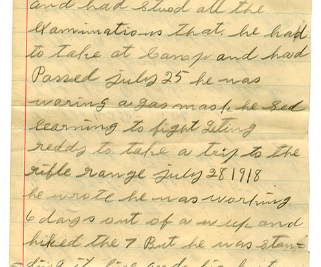 and had stood all the
examinations that he had
to take at Camp and had
Passed july 25 he was
waring a gas mask he sed
learning to fight Geting
reddy to take a trip to the
rifle range july 28 1918
he wrote he was working
6 days out of a week and
hiked the 7 But he was stan=
ding it fine and